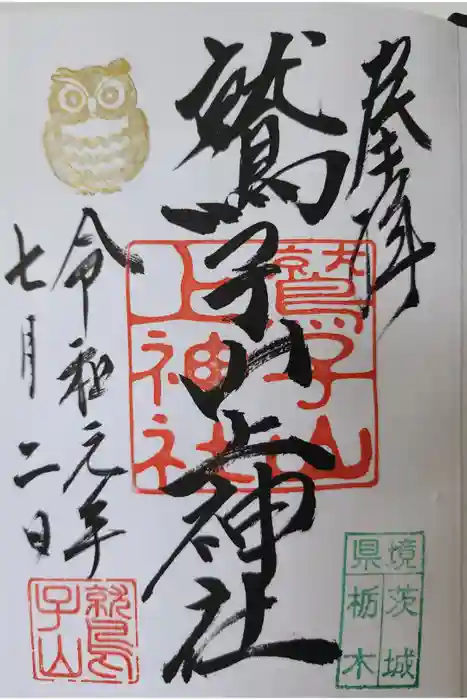 奉拝
鷲子山上神社
令和元年
七月二日
鷲子山
上神社
鷲
子山
境茨城
県栃木